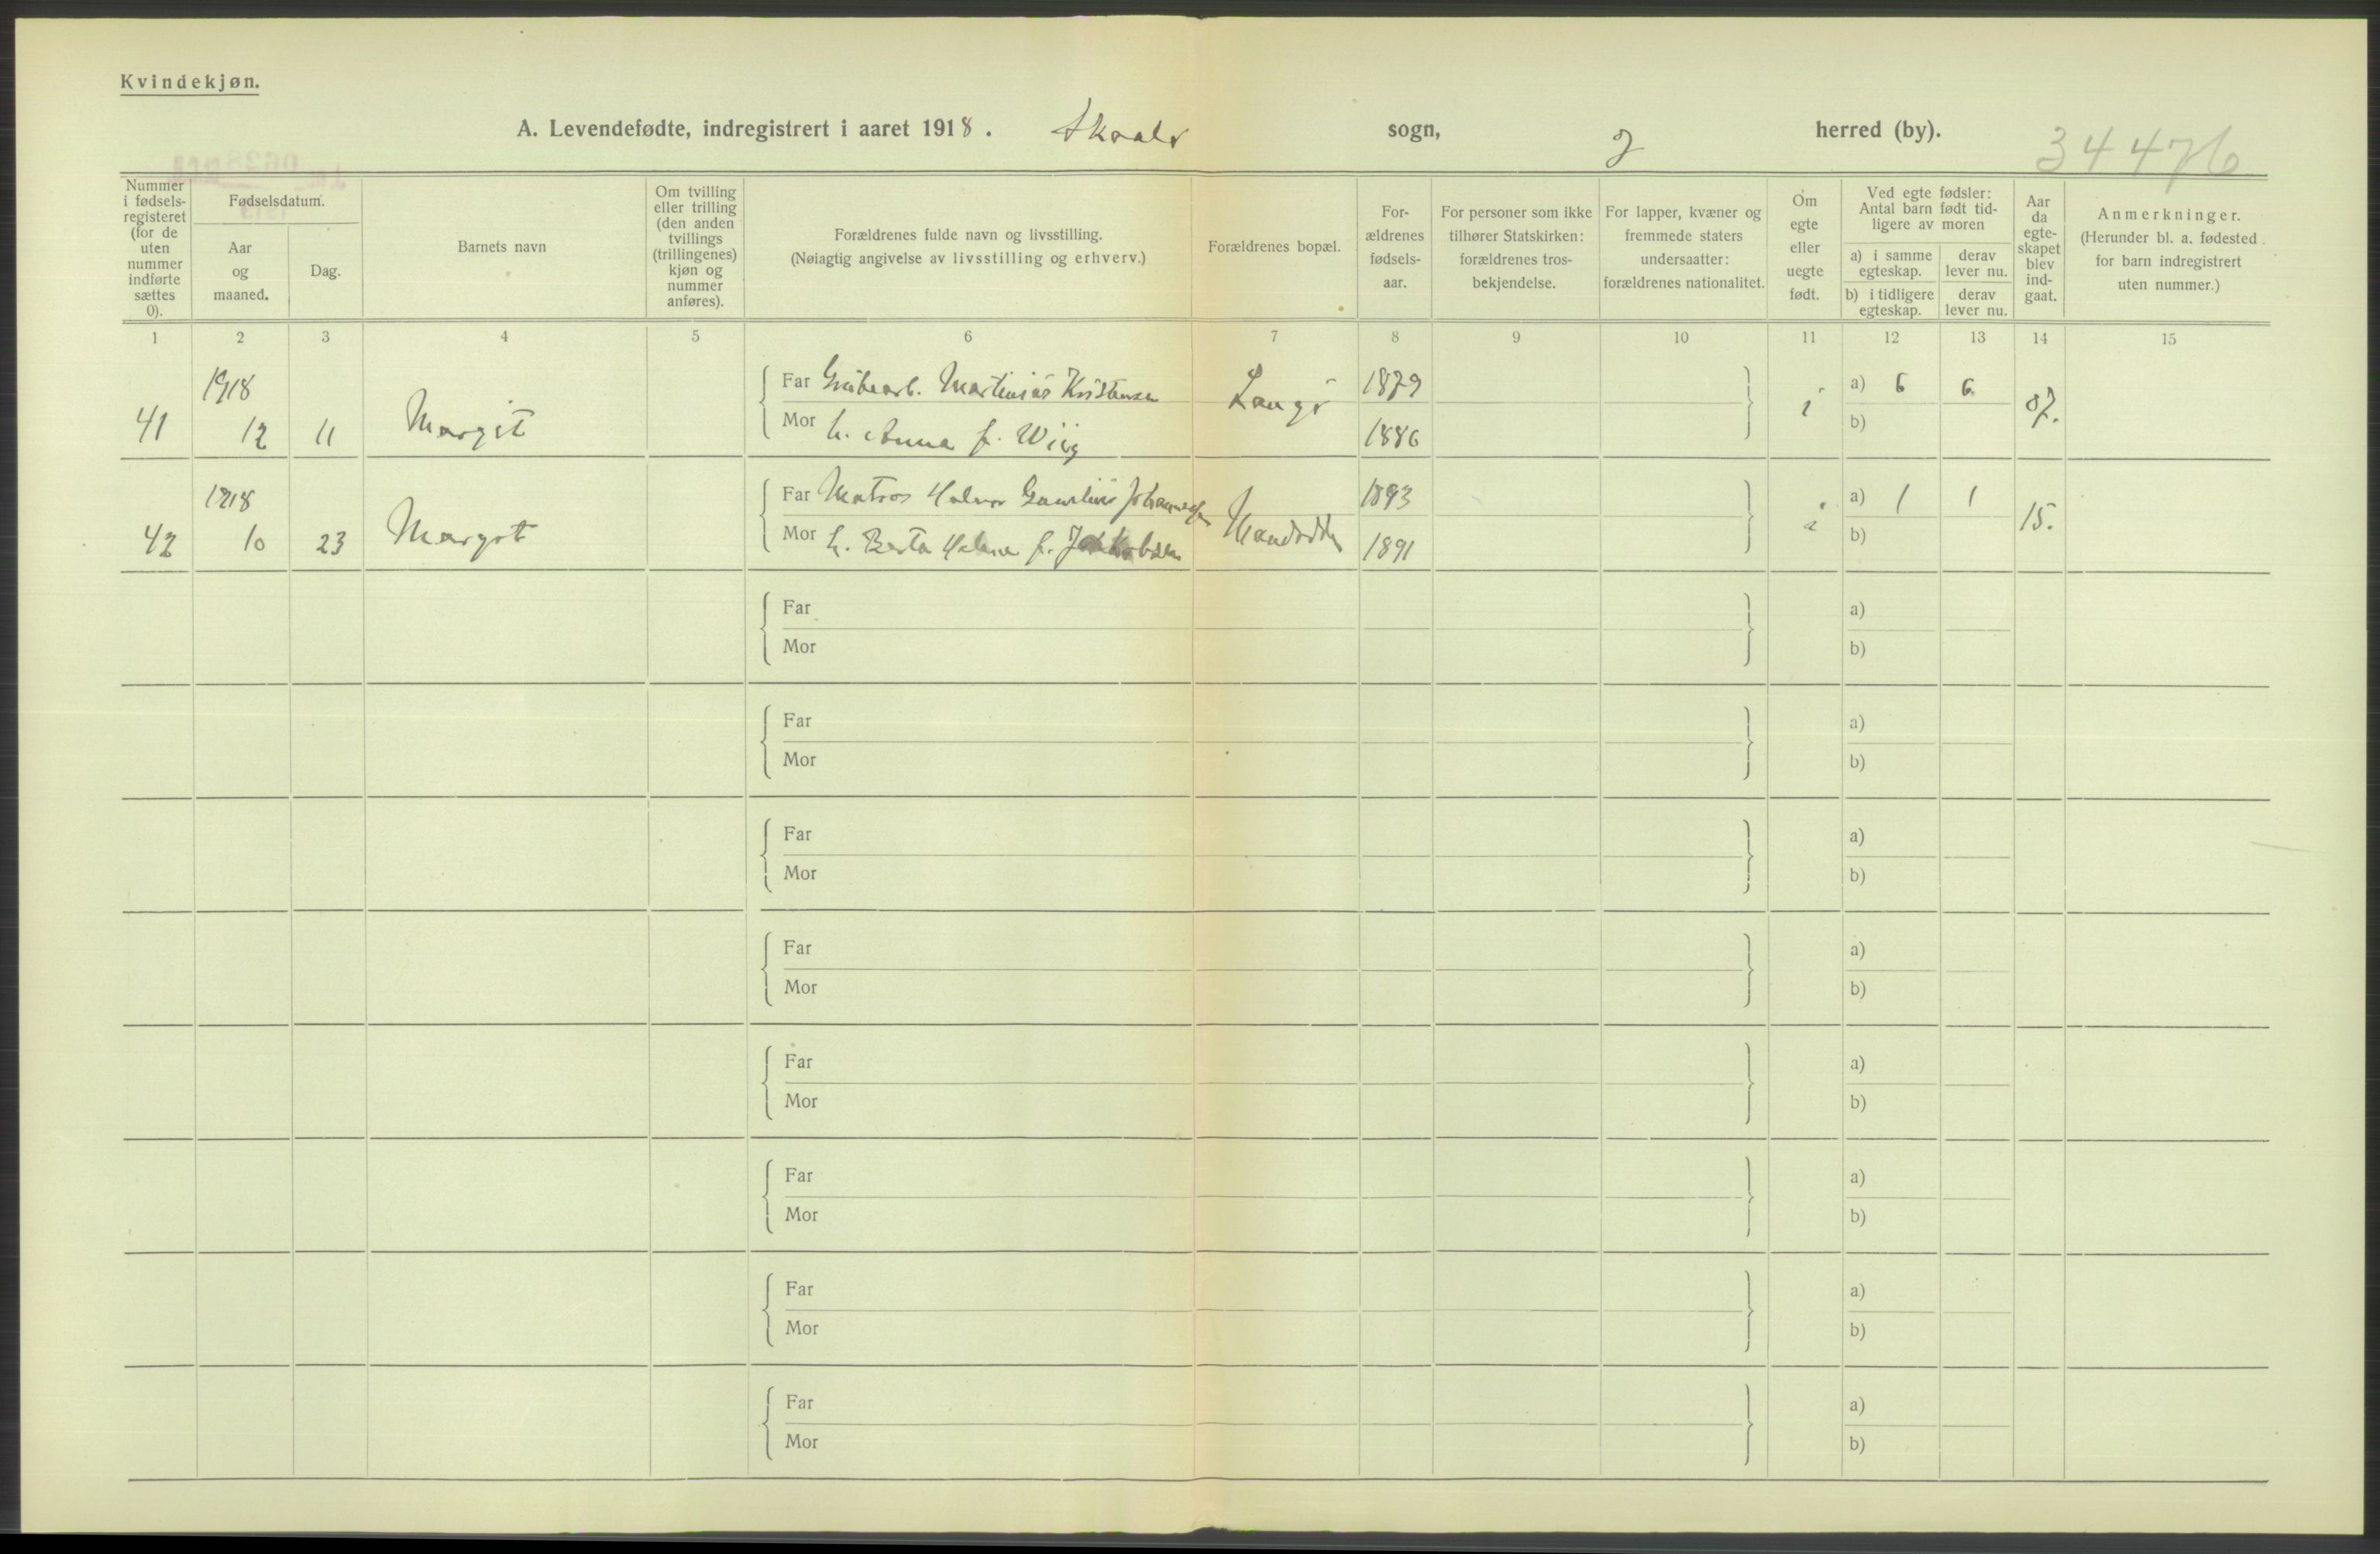 Kvindekjøn.
A. Levendefødte, indregistrert i aaret 1918. sogn, herred (by).
34476
Nummer i fødsels-registeret (for de uten nummer indførte sættes 0).
Fødselsdatum.
Aar og maaned.
Dag.
Barnets navn
Om tvilling eller trilling (den anden tvillings (trillingenes) kjøn og nummer anføres).
Forældrenes fulde navn og livsstilling.
(Nøiagtig angivelse av livsstilling og erhverv.)
Forældrenes bopæl.
For-ældrenes fødsels-aar.
For personer som ikke tilhører Statskirken: forældrenes tros-bekjendelse.
For lapper, kvæner og fremmede staters undersaatter: forældrenes nationalitet.
Om egte eller uegte født.
Ved egte fødsler: Antal barn født tid-ligere av moren
a) i samme egteskap.
derav lever nu.
b) i tidligere egteskap.
derav lever nu.
Aar da egte-skapet blev ind-gaat.
Anmerkninger.
(Herunder bl. a. fødested for barn indregistrert uten nummer.)
1 2 3 4 5 6 7 8 9 10 11 12 13 14 15
41 1918 12 11 Margit
Far Grubearb. Martinius Kristensen Langö 1879 a) 6 6 07.
Mor h. Anna f. Wiig 1886 b)
42 1918 10 23 Margot
Far Matros Halvor Johannesen 1893 a) 1 1 15.
Mor h. Berta f. Jakobsen 1891 b)
Far a)
Mor b)
Far a)
Mor b)
Far a)
Mor b)
Far a)
Mor b)
Far a)
Mor b)
Far a)
Mor b)
Far a)
Mor b)
Far a)
Mor b)